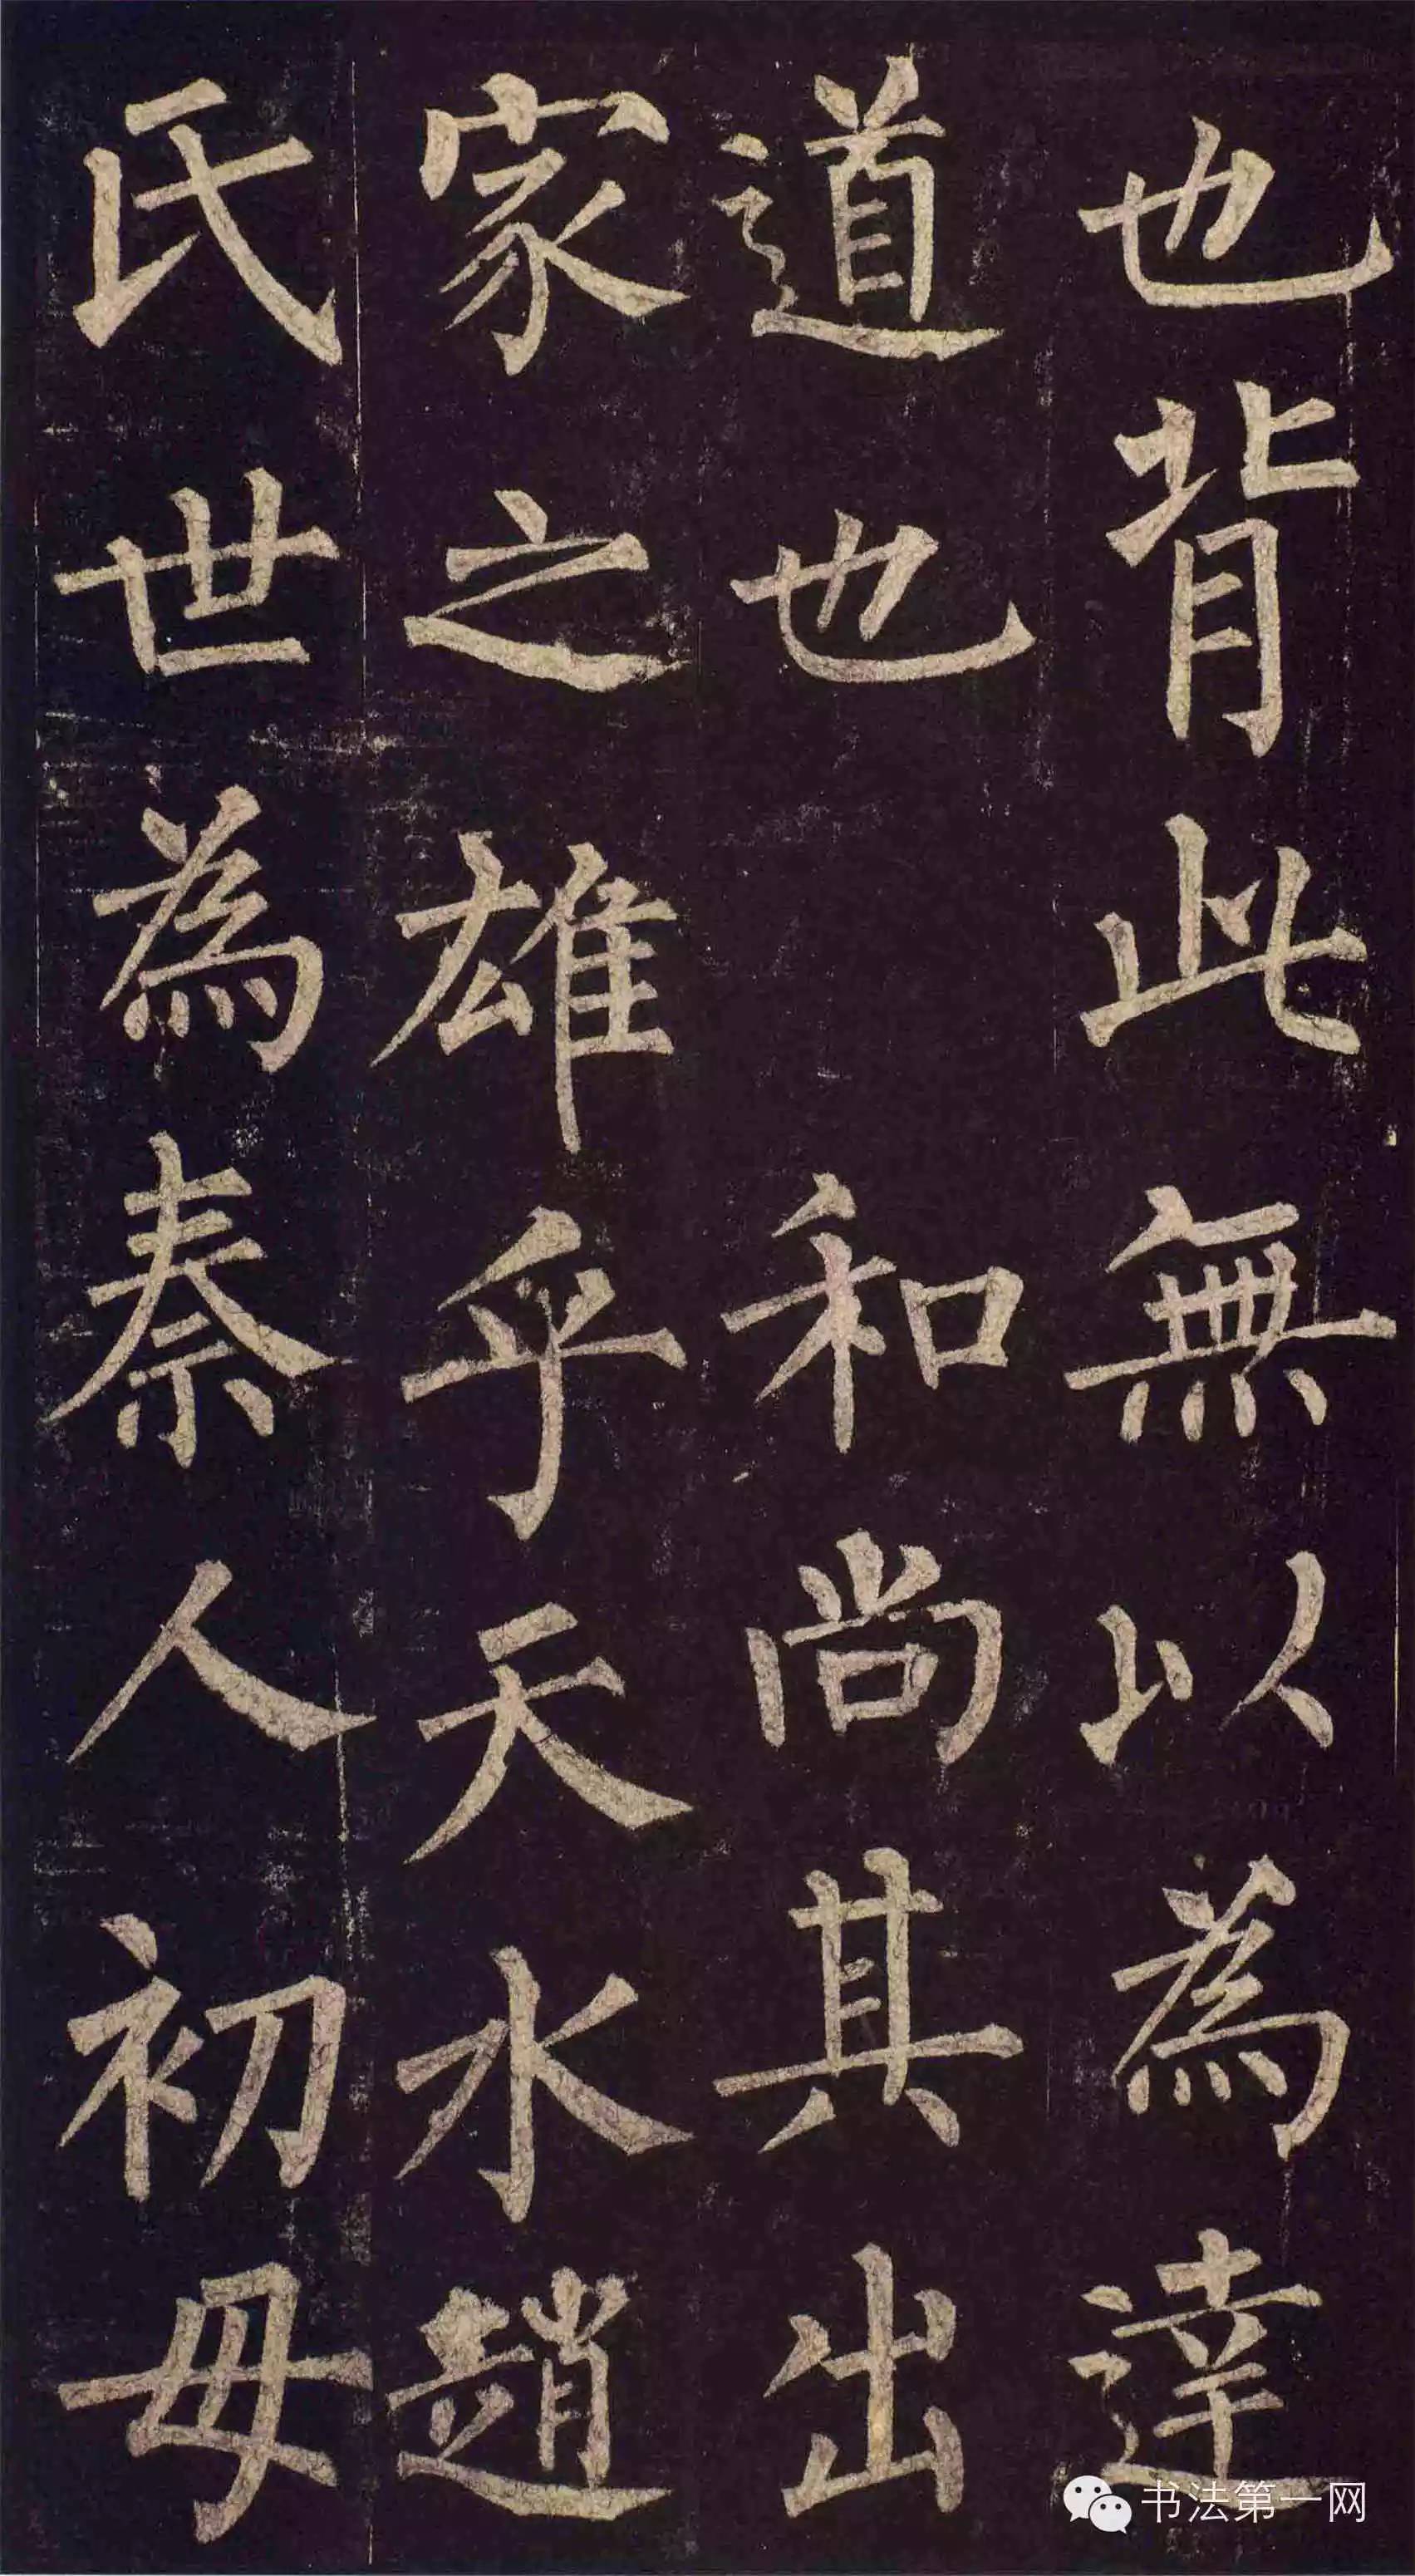 也背此無以為達
道也 和尚其出
家之雄乎天水趙
氏世為秦人初母
书法第一网